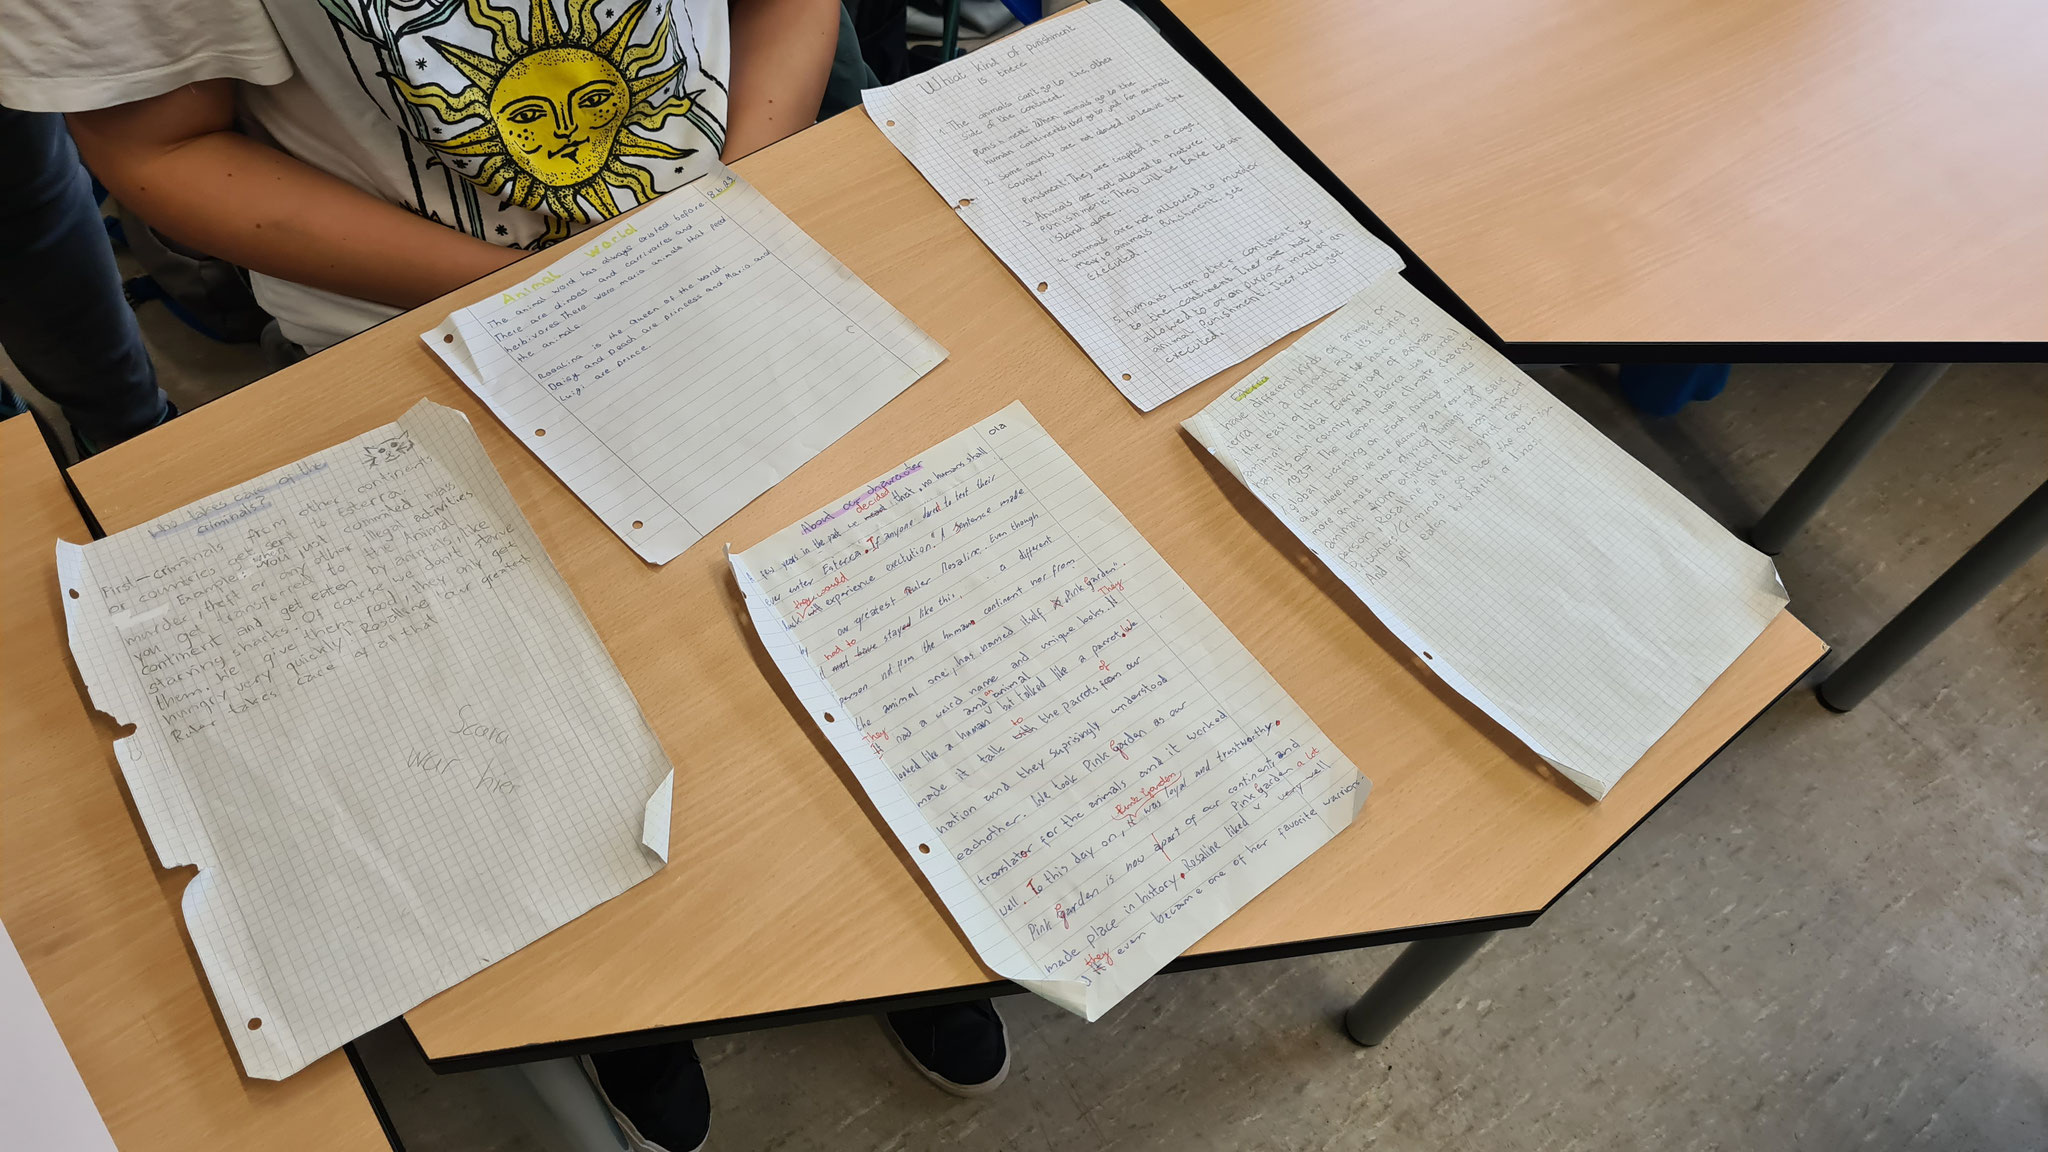 Who takes care of the
criminals?
First-criminals from other continents
or countries get sent to Esterra.
Example: you just commited mass
murder, theft or any other illegal activities
you get transferred to the Animal
continent and get eaten by animals, like
starving sharks. Of course we don't starve
them. We give them food, they only get
hungry very quickly! Rosaline our greatest
Ruler takes care of all that
Scara
war hier
8.6.23
Animal world
The animal word has always existed before
There are dinoes and carrivores and
herbivores There were mario animals that feed
the animals
Rosalina is the Queen of the world.
Daisy and Peach are princess and Mario and
Luigi are prince.
What kind of punishment
is there
1. The animals can't go to the other
side of the continent.
Punishment: When animals go to the
human continents they go to jail for animals
2. Some animals are not allowed to leave the
counter.
Punishment: They are trapped in a cage.
3. Animals are not allowed to nature
Punishment: They will be take to an
island alone
4. animals are not allowed to murder
mario animals Punishment: get
Executed.
5. humans from other continent go
to the continent They are not
allowed to on purpose murder an
animal Punishment: They will get
executed.
Ola
About our character
decided
A few years in the past we that, no humans shall
ever enter Esterra. If anyone dared to test their
they would
luck experience exclution. A Sentence made
by our greatest Ruler Rosaline. Even though
had to
it must have stayed like this, a different
person not from the human continent nor from
the animal one, has named itself "Pink garden".
They
It had a weird name and unique looks. It
They an
looked like a human and animal but talked like a parrot. We
to of
made it talk with the parrots from our
nation and they suprisingly understood
eachother. We took Pink garden as our
translator for the animals and it worked
Pink Garden
well. To this day on, it was loyal and trustworthy.
Pink garden is now apart of our continent and
made place in history. Rosaline liked Pink garden very well
a lot
they
It even became one of her favorite warriors.
Esterra
have different kinds of animals on
terra It's a continent and it's located
the east of the world. What we have over
animal in total. Every group of animal
has its own country and Esterra was founded
in 1937. The reason was climate change
global warming on Earth hurting animals